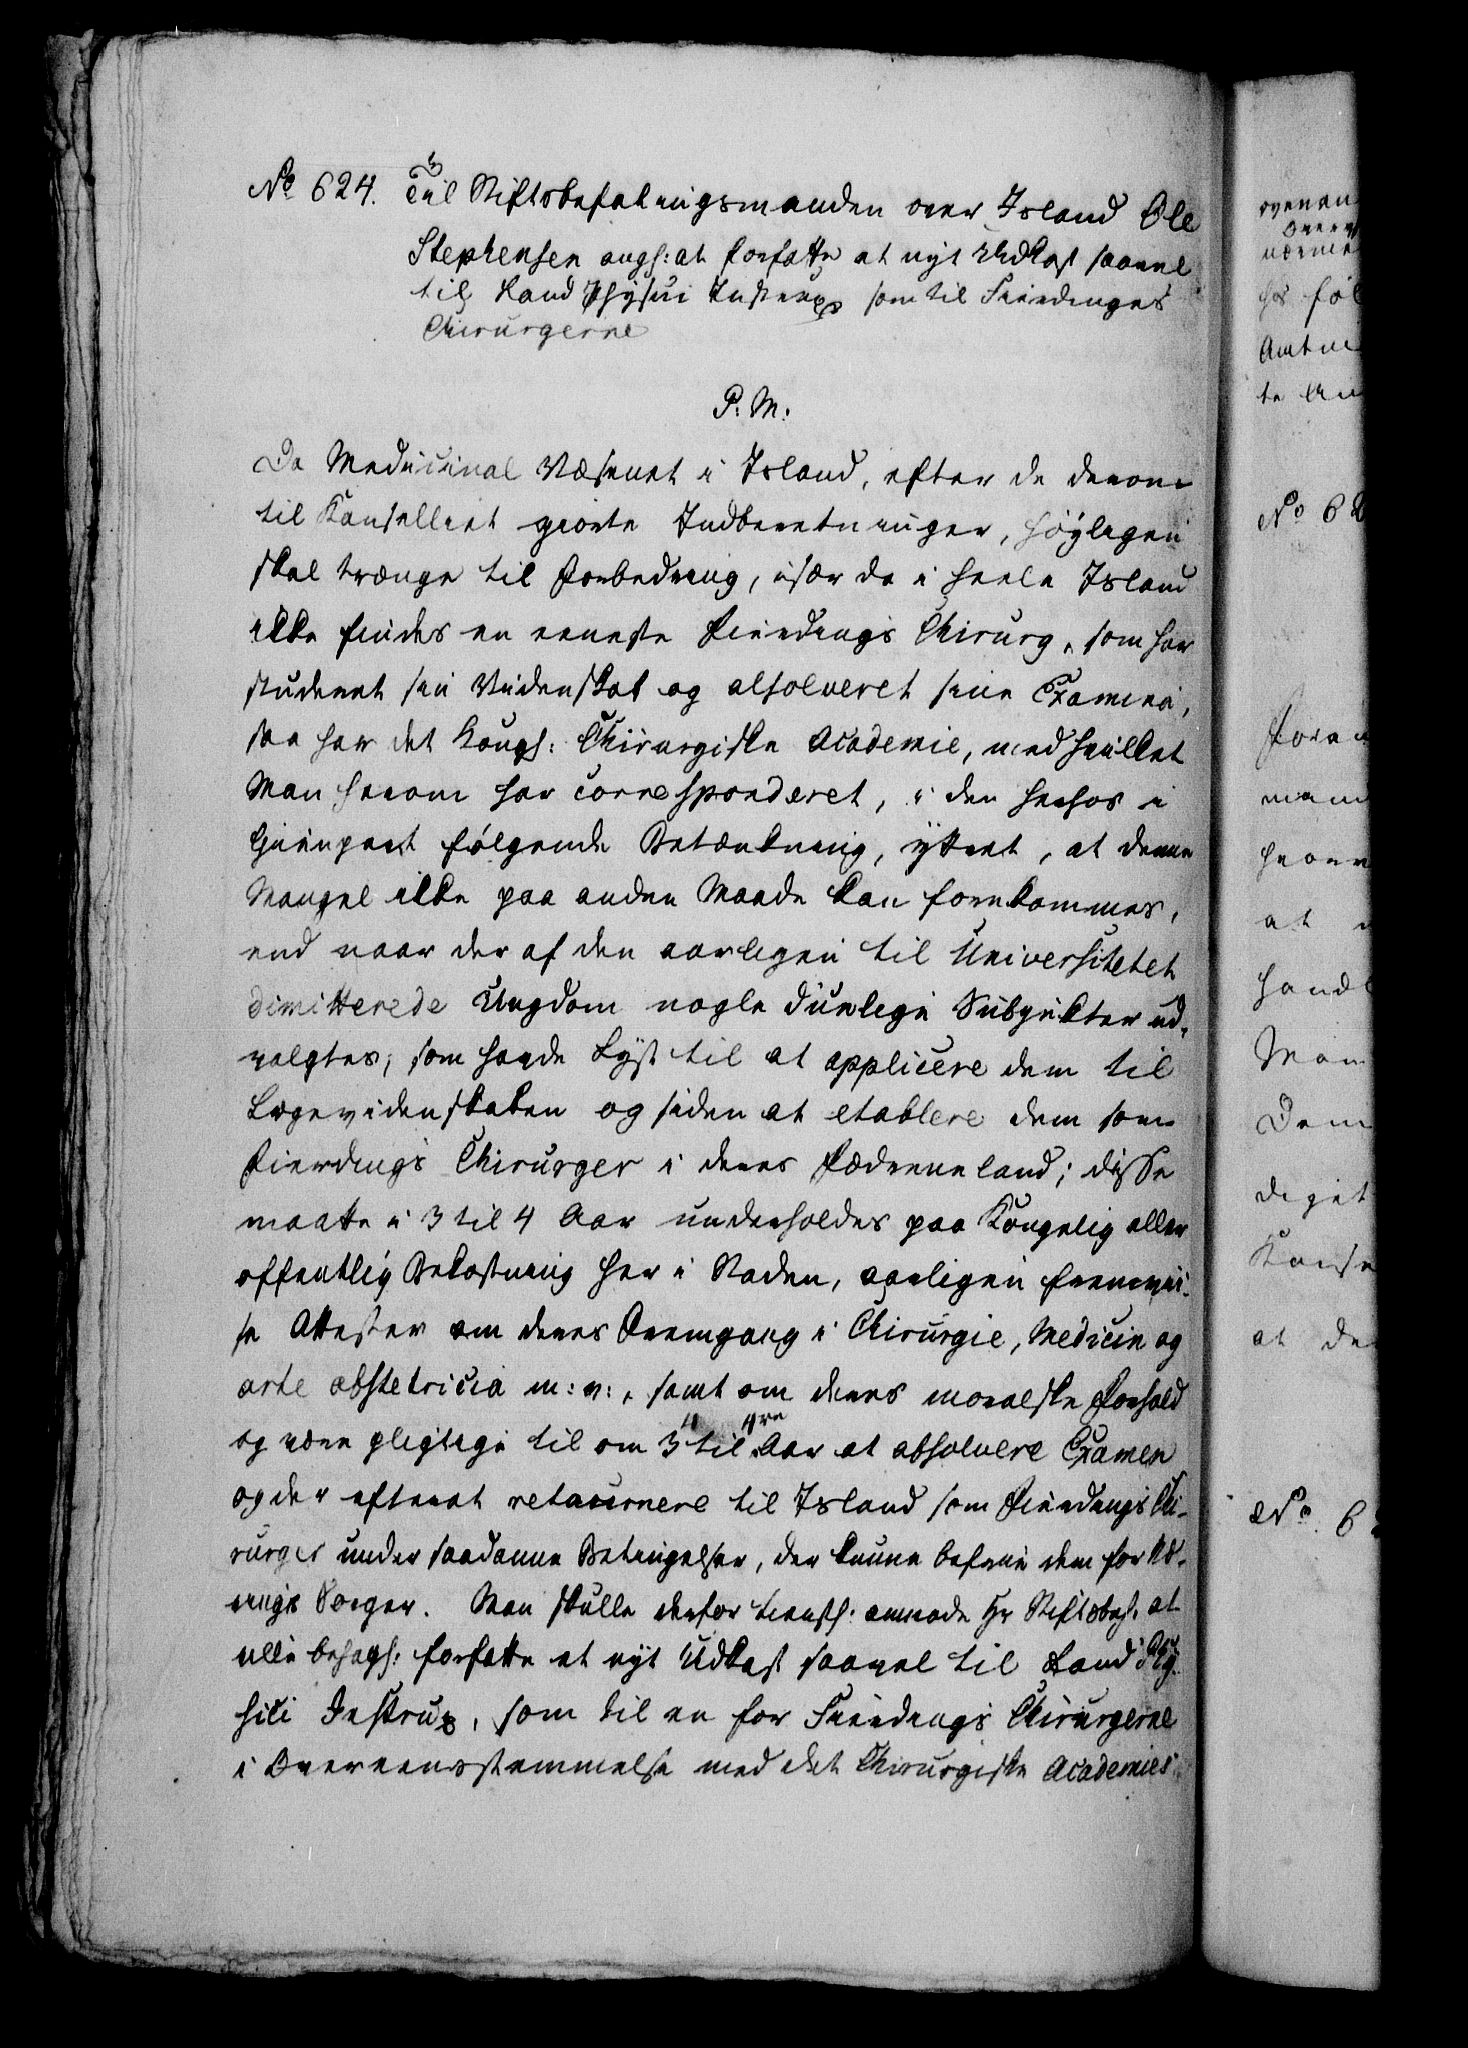 No 624. Til Stiftsbefalningsmanden over Island Ole
Stephensen angh: at forfatte et nyt Udkast saavel
til Land Physici Instrux som til Fierdings
Chirurgerne
P. M.
Da Medicinal Væsenet i Island, efter de derom
til Kanselliet giorte Indberetninger, høyligen
skal trænge til Forbedring, især da i heele Island
ikke findes en eeneste Fierdings Chirurg, som har
studeret sin Videnskab og absolveret sine Examina,
saa har det Kongl: Chirurgiske Academie, med hvilket
Man herom har corresponderet, i den herhos i
Gienpart følgende Betænkning, yttret, at denne
Mangel ikke paa anden Maade kan forekommes,
end naar der af den aarligen til Universitetet
dimitterede Ungdom nogle duelige Subjekter ud-
valgtes, som havde Lyst til at applicere dem til
Lægevidenskaben og siden at etablere dem som
Fierdings Chirurger i deres Fædreneland; disse
maatte i 3 til 4 Aar underholdes paa Kongelig eller
offentlig Bekostning her i Staden, aarligen fremvii-
se Attester om deres Fremgang i Chirurgie, Medicin og
arte obstetricia m: v:, samt om deres moralske Forhold
og være pligtige til om 3 til 4re Aar at absolvere Examen
og der efter at retournere til Island som Fierdings Chi-
rurger under saadanne Betingelser, der kunne befrie dem for Næ-
rings Sorger. Man skulle derfor tienstl: anmode Hr Stiftsbef: at
ville behagl: forfatte et nyt Udkast saavel til Land Phy-
sici Instrux, som til en for Fierdings Chirurgerne
i Overeensstemmelse med det Chirurgiske Academies
No 6
No 6